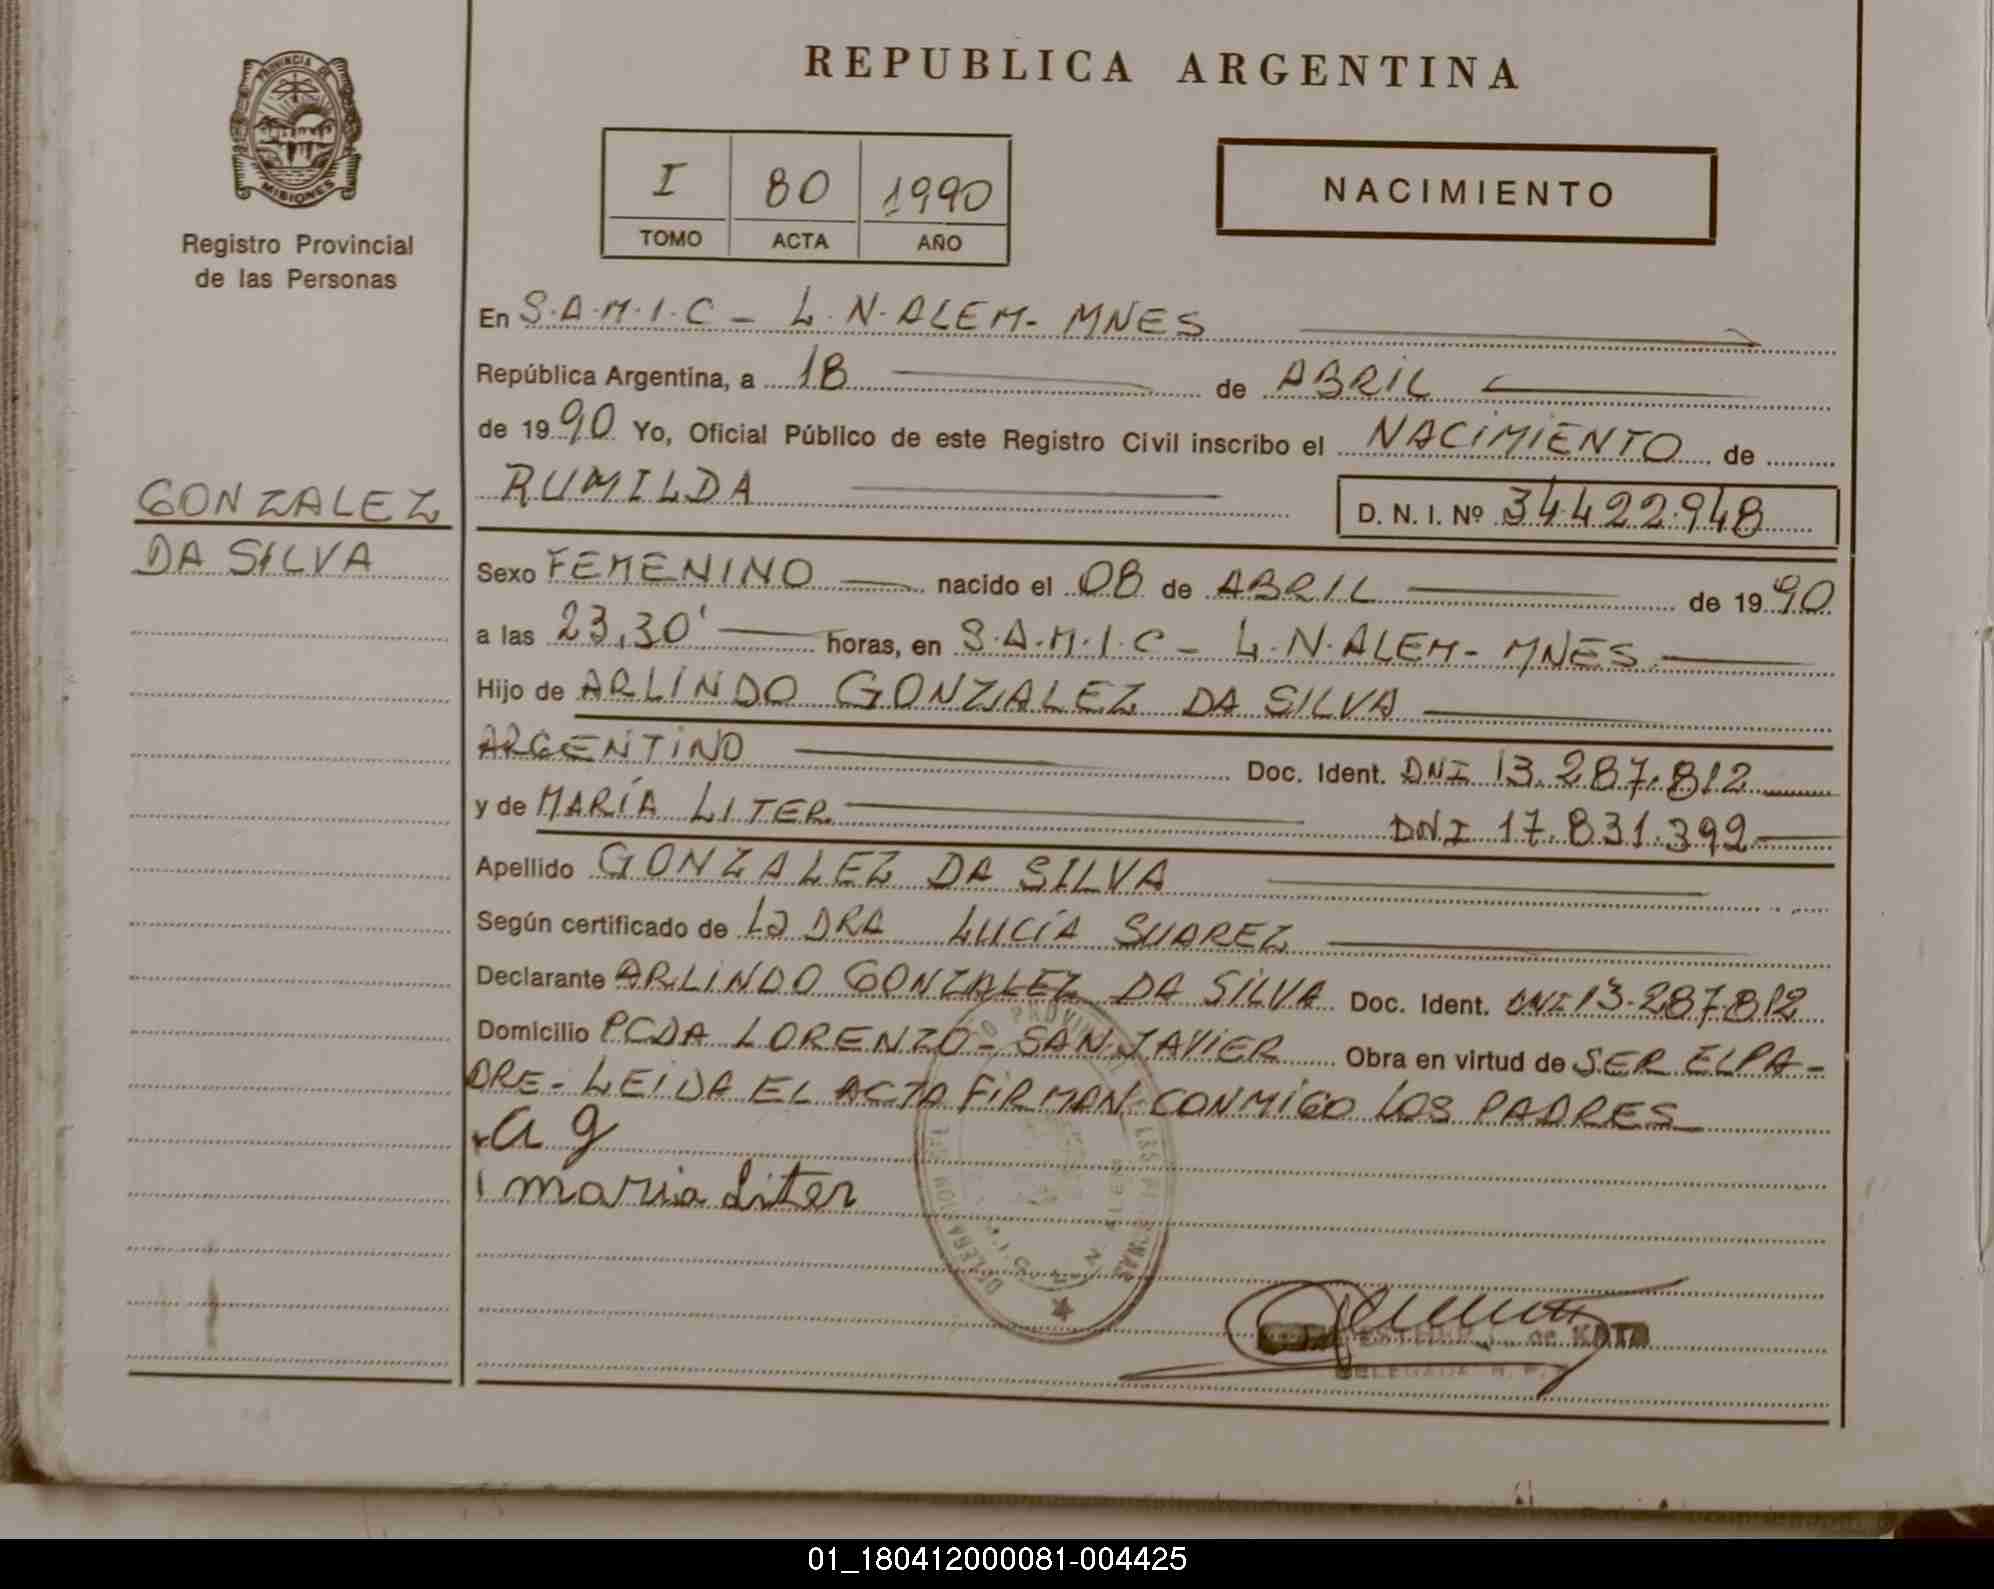 REPUBLICA ARGENTINA
PROVINCIA DE
MISIONES
Registro Provincial
de las Personas
I 80 1990
TOMO ACTA AÑO
NACIMIENTO
En S.A.M.I.C - L.N.ALEM- MNES
República Argentina, a 18 de ABRIL
de 1990 Yo, Oficial Público de este Registro Civil inscribo el NACIMIENTO de
GONZALEZ
DA SILVA
RUMILDA D. N. I. Nº 34.422.948
Sexo FEMENINO nacido el 08 de ABRIL de 1990
a las 23,30' horas, en S.A.M.I.C - L.N.ALEM- MNES
Hijo de ARLINDO GONZALEZ DA SILVA
ARGENTINO Doc. Ident. DNI 13.287.812
y de MARÍA LITER DNI 17.831.392
Apellido GONZALEZ DA SILVA
Según certificado de La DRA LUCÍA SUAREZ
Declarante ARLINDO GONZALEZ DA SILVA Doc. Ident. DNI 13.287.812
Domicilio PCDA LORENZO - SAN JAVIER Obra en virtud de SER EL PA-
DRE - LEIDA EL ACTA FIRMAN CONMIGO LOS PADRES
a g
maria Liter
de KATA
DELEGADA R. P.
01_180412000081-004425